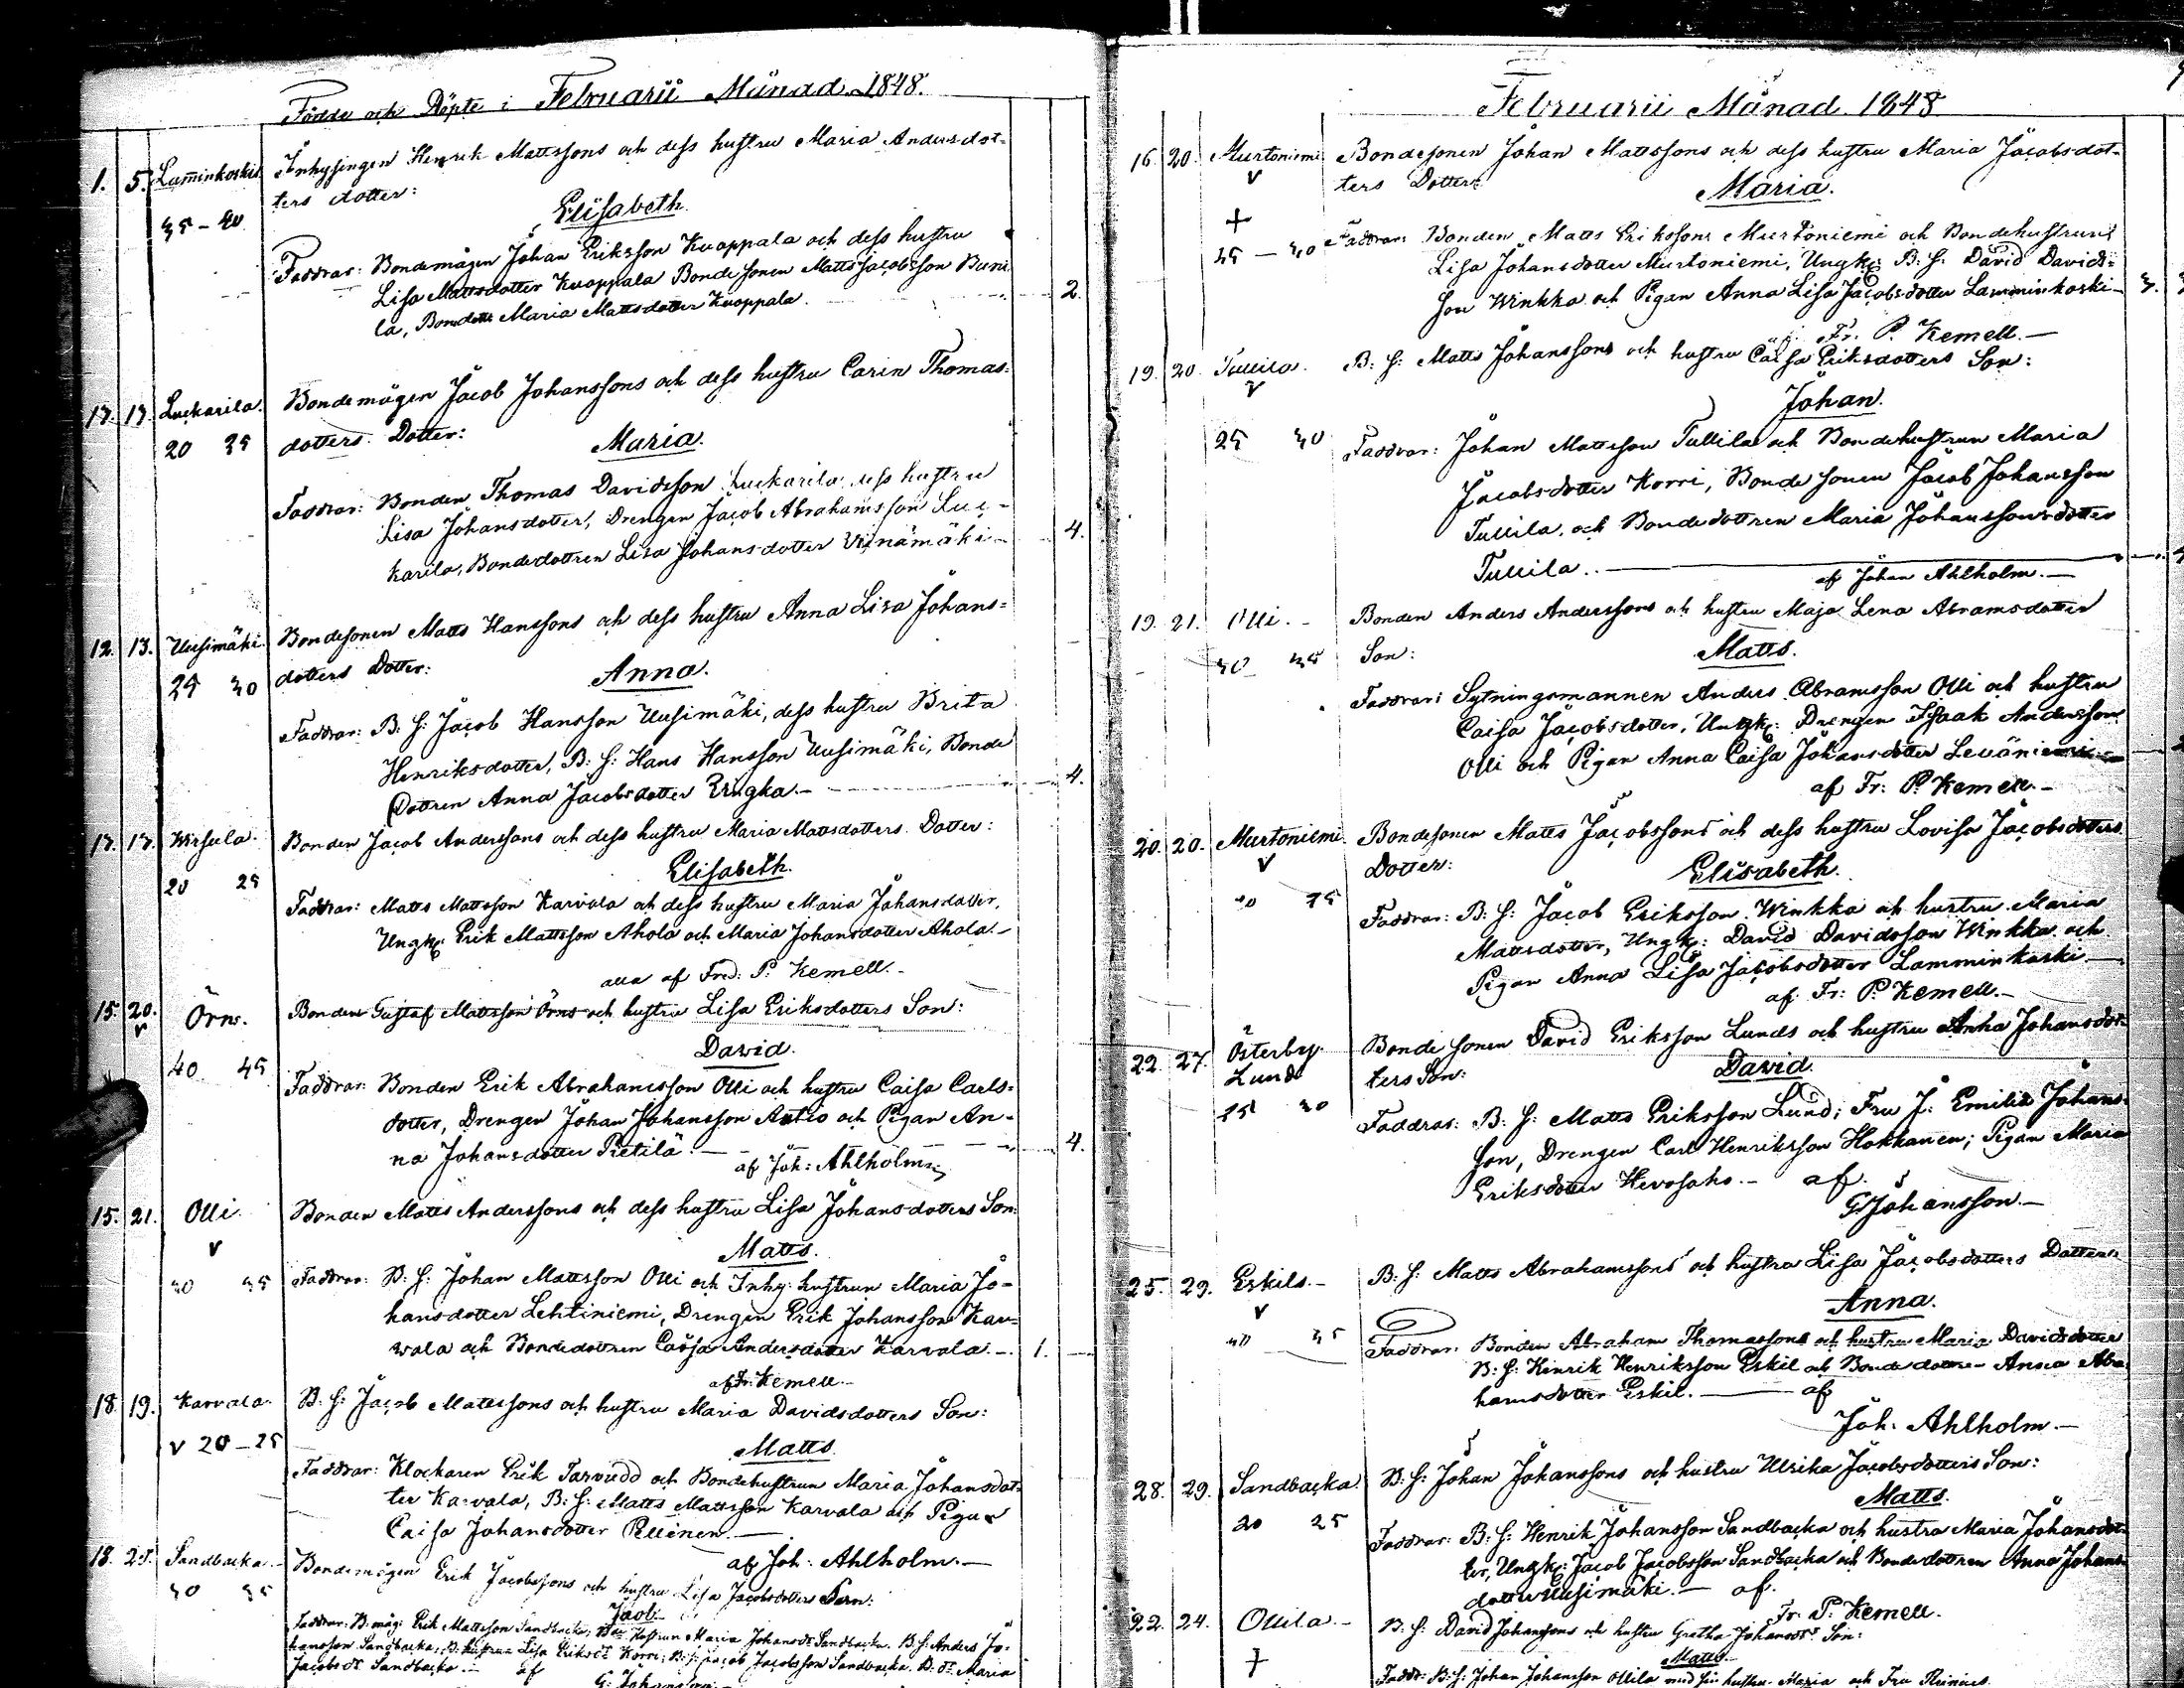 Födde och Döpte i Februarii Månad 1848.
1. 5. Laminkoski Inhysingen Henrik Mattssons och dess hustru Maria Andersdot-
ters dotter:
35-40 Elisabeth.
Faddrar: Bondemågen Johan Eriksson Knoppala och dess hustru
Lisa Mattsdotter Knoppala Bondesonen Matts Jacobsson Buni
la, Bondott: Maria Mattsdotter Knoppala. 2.
13. 13. Luckarila. Bondemågen Jacob Johanssons och dess hustru Carin Thomas-
20 35 dotters Dotter:
Maria.
Faddrar: Bonden Thomas Davidsson Luckarila, dess hustru
Lisa Johansdotter, Drengen Jacob Abrahamsson Luc-
karila, Bondedottren Lisa Johansdotter Viinämäki 4.
12. 13. Uusimäki. Bondesonen Matts Hanssons och dess hustru Anna Lisa Johans-
25 30 dotters Dotter:
Anna.
Faddrar: B: S: Jacob Hansson Uusimäki, dess hustru Brita
Henriksdotter, B: S: Hans Hansson Uusimäki, Bonde
Dottren Anna Jacobsdotter Ringka.- 4.
13. 13. Wirsula. Bonden Jacob Anderssons och dess hustru Maria Mattsdotters Dotter:
Elisabeth.
20 25 Faddrar: Matts Mattsson Karvala och dess hustru Maria Johansdotter,
Ungk: Erik Mattsson Ahola och Maria Johansdotter Ahola.-
alla af Fred: P. Kemell.-
15. 20. Örns. Bonden Gustaf Mattsson Örns och hustru Lisa Eriksdotters Son:
v David.
40 45 Faddrar: Bonden Erik Abrahamsson Olli och hustru Caisa Carls-
dotter, Drengen Johan Johansson Antio och Pigan An-
na Johansdotter Pietilä.- 4.
af Joh: Ahlholm.
15. 21. Olli. Bonden Matts Anderssons och dess hustru Lisa Johansdotters Son:
v Matts.
30 35 Faddrar: B: S: Johan Mattsson Olli och Inhy: hustrun Maria Jo-
hansdotter Lehtiniemi, Drengen Erik Johansson Kar-
vala och Bondedottren Caisa Andersdotter Karvala.- 1.
af Fr: Kemell.-
18. 19. Karvala. B: S: Jacob Mattssons och hustru Maria Davidsdotters Son:
v 20-25 Matts.
Faddrar: Klockaren Erik Tarvudd och Bondehustrun Maria Johansdot-
ter Karvala, B: S: Matts Mattsson Karvala och Pigan
Caisa Johansdotter Pellinen.-
af Joh: Ahlholm.-
18. 25. Sandbacka.- Bondemågen Erik Jacobssons och hustru Lisa Jacobsdotters Son:
30 35 Jacob.
Faddrar: B. måg: Erik Mattsson Sandbacka; Hustrun Maria Johansdr Sandbacka. B. S: Anders Jo-
hansson Sandbacka, B. hustrun Lisa Eriksdr Korri; B: S: Jacob Jacobsson Sandbacka. B. dr Maria
Jacobsdr Sandbacka.- af
G: Johansson.-
Februarii Månad 1848
16. 20. Murtoniemi Bondesonen Johan Mattssons och dess hustru Maria Jacobsdot-
v ters Dotter:
Maria.
+
35-40 Faddrar: Bonden Matts Erikssons Murtoniemi och Bondehustrun
Lisa Johansdotter Murtoniemi, Ungk: B: S: David Davids-
son Winkka och Pigan Anna Lisa Jacobsdotter Lamminkoski- 3.
af. Fr. P. Kemell.-
19. 20. Tullila. B: S: Matts Johanssons och hustru Caisa Eriksdotters Son:
v Johan.
25 30 Faddrar: Johan Mattsson Tullila och Bondehustrun Maria
Jacobsdotter Korri, Bonde sonen Jacob Johansson
Tullila, och Bondedottren Maria Johanssonsdotter
Tullila..-
af Johan Ahlholm.-
19. 21. Olli.- Bonden Anders Anderssons och hustru Maja Lena Abramsdotter
30 35 Son: Matts.
Faddrar: Sytningsmannen Anders Abramsson Olli och hustru
Caisa Jacobsdotter, Ungk: Drengen Isaak Andersson
Olli och Pigan Anna Caisa Johansdotter Leväniemi
af Fr: P. Kemell.-
20. 20. Murtoniemi. Bondesonen Matts Jacobssons och dess hustru Lovisa Jacobsdotters
v Dotter: Elisabeth.
Faddrar: B: S: Jacob Eriksson Winkka och hustru Maria
Mattsdotter, Ungk: David Davidsson Winkka och
Pigan Anna Lisa Jacobsdotter Lamminkoski.-
af. Fr: P. Kemell.-
22. 27. Österby. Bonde sonen David Eriksson Lunds och hustru Anna Johansdot-
Lund ters Son: David.
25 30 Faddrar: B: S: Matts Eriksson Lund; Fru J: Emilia Johans-
son, Drengen Carl Henriksson Hakkanen; Pigan Maria
Eriksdotter Hevosaho.- af.
G Johansson.-
25. 29. Eskils.- B: S: Matts Abrahamssons och hustru Lisa Jacobsdotters Dotter:
v Anna.
Faddrar: Bonden Abraham Thomassons och hustru Maria Davidsdotter
B: S: Henrik Henriksson Eskil och Bondedottren Anna Abra
hamsdotter Eskil.- af
Joh. Ahlholm.-
28. 29. Sandbacka B: S: Johan Johanssons och hustru Ulrika Jacobsdotters Son:
Matts.
20 25 Faddrar: B: S: Henrik Johansson Sandbacka och hustru Maria Johansdot-
ter, Ungk: Jacob Jacobsson Sandbacka och Bondedottren Anna Johans-
dotter Uusimäki.- af.
Fr. P. Kemell.
22. 24. Ollila.- B: S: David Johanssons och hustru Gretha Johansdr Son:
+ Matts.
Faddr: B: S: Johan Johansson Ollila med sin hustru Maria och Fru